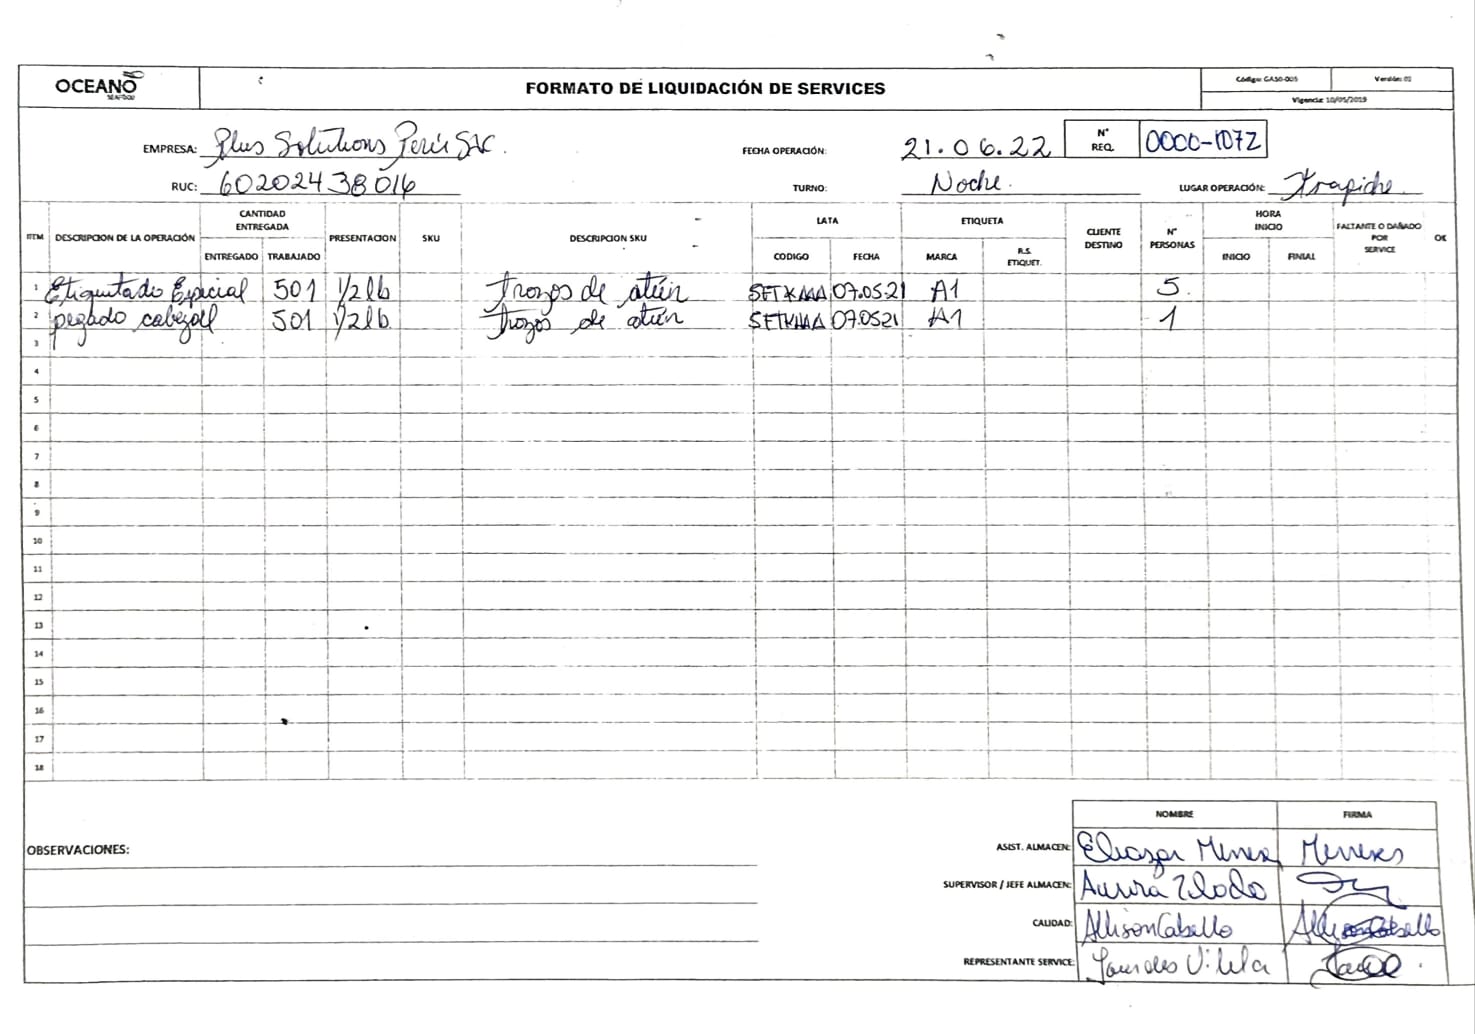 OCEANO
SEAFOOD
FORMATO DE LIQUIDACIÓN DE SERVICES
Código: GASO-005
Versión: 02
Vigencia: 10/05/2019
EMPRESA: Plus Solutions Perú SAC.
FECHA OPERACIÓN: 21.06.22
N° REQ. 0000-1072
RUC: 60202438016
TURNO: Noche.
LUGAR OPERACIÓN: Trapiche
ITEM DESCRIPCION DE LA OPERACIÓN CANTIDAD ENTREGADA PRESENTACION SKU DESCRIPCION SKU LATA ETIQUETA CLIENTE DESTINO N° PERSONAS HORA INICIO FALTANTE O DAÑADO POR SERVICE OK
ENTREGADO TRABAJADO CODIGO FECHA MARCA R.S. ETIQUET. INICIO FINIAL
1 Etiquetado Especial 501 1/2 lb Trozos de atún 07.05.21 A1 5.
2 pegado 501 1/2 lb Trozos de atún 07.0521 A1 1
3
4
5
6
7
8
9
10
11
12
13
14
15
16
17
18
NOMBRE FIRMA
OBSERVACIONES:
ASIST. ALMACEN: Eleazar
SUPERVISOR / JEFE ALMACEN:
CALIDAD: Allison Cabello
REPRESENTANTE SERVICE: Lourdes Vilela